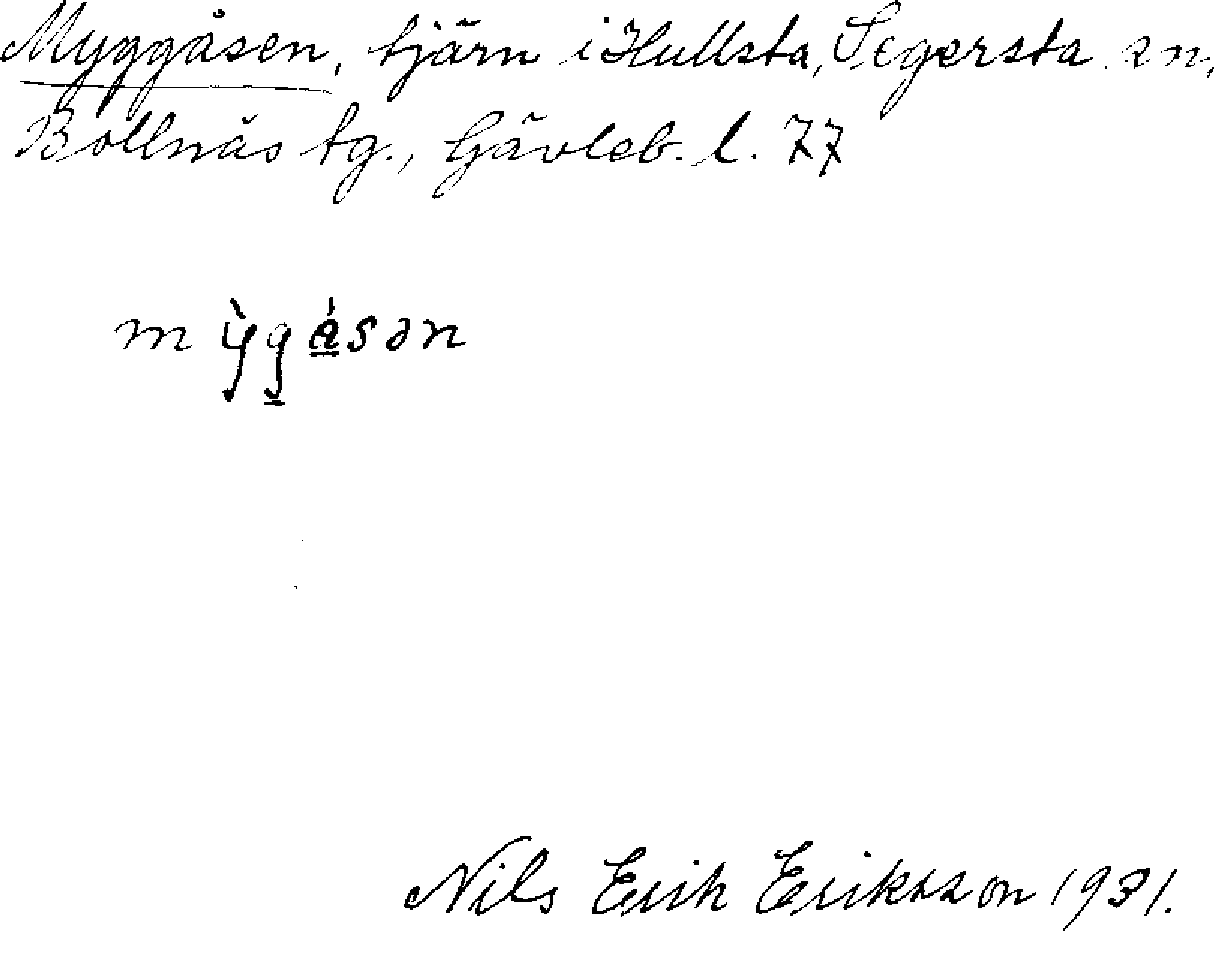 Myggåsen, tjärn i Hullsta, Segersta sn,
Bollnäs tg., Gävleb. l. 77
mỳgásən
Nils Erik Eriksson 1931.